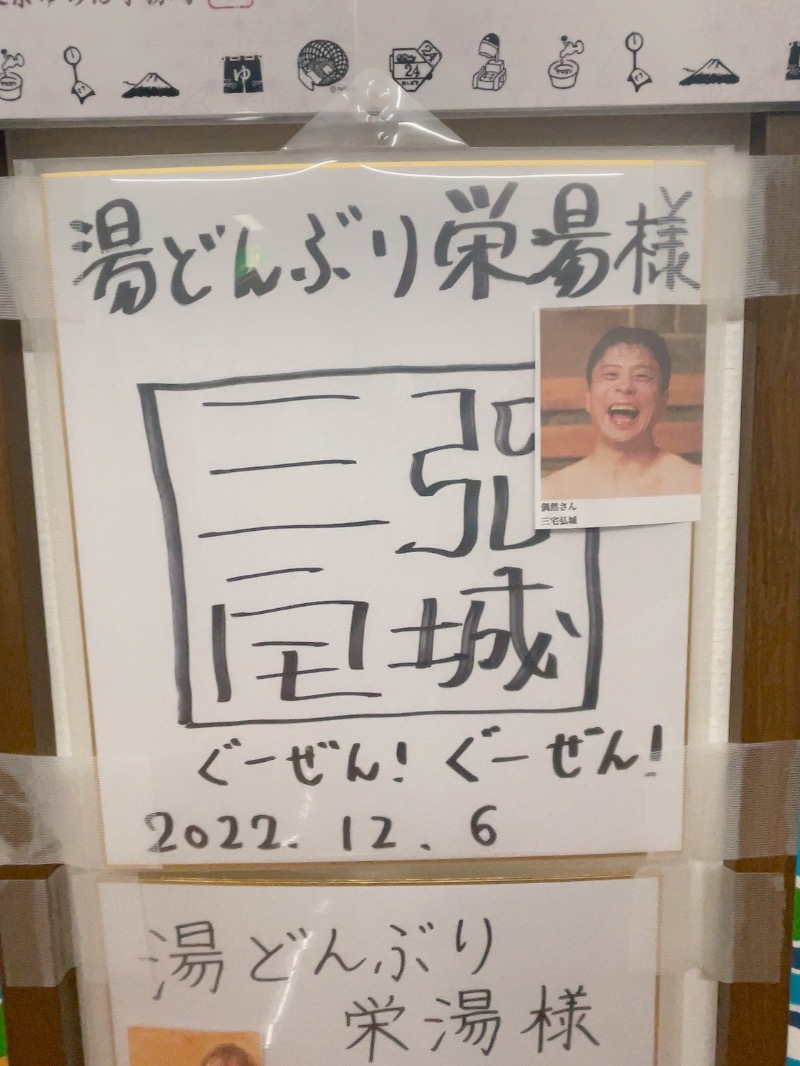 ゆ
24
湯どんぶり栄湯様
三宅
弘城
偶然さん
三宅弘城
ぐーぜん! ぐーぜん!
2022. 12. 6
湯どんぶり
栄湯様